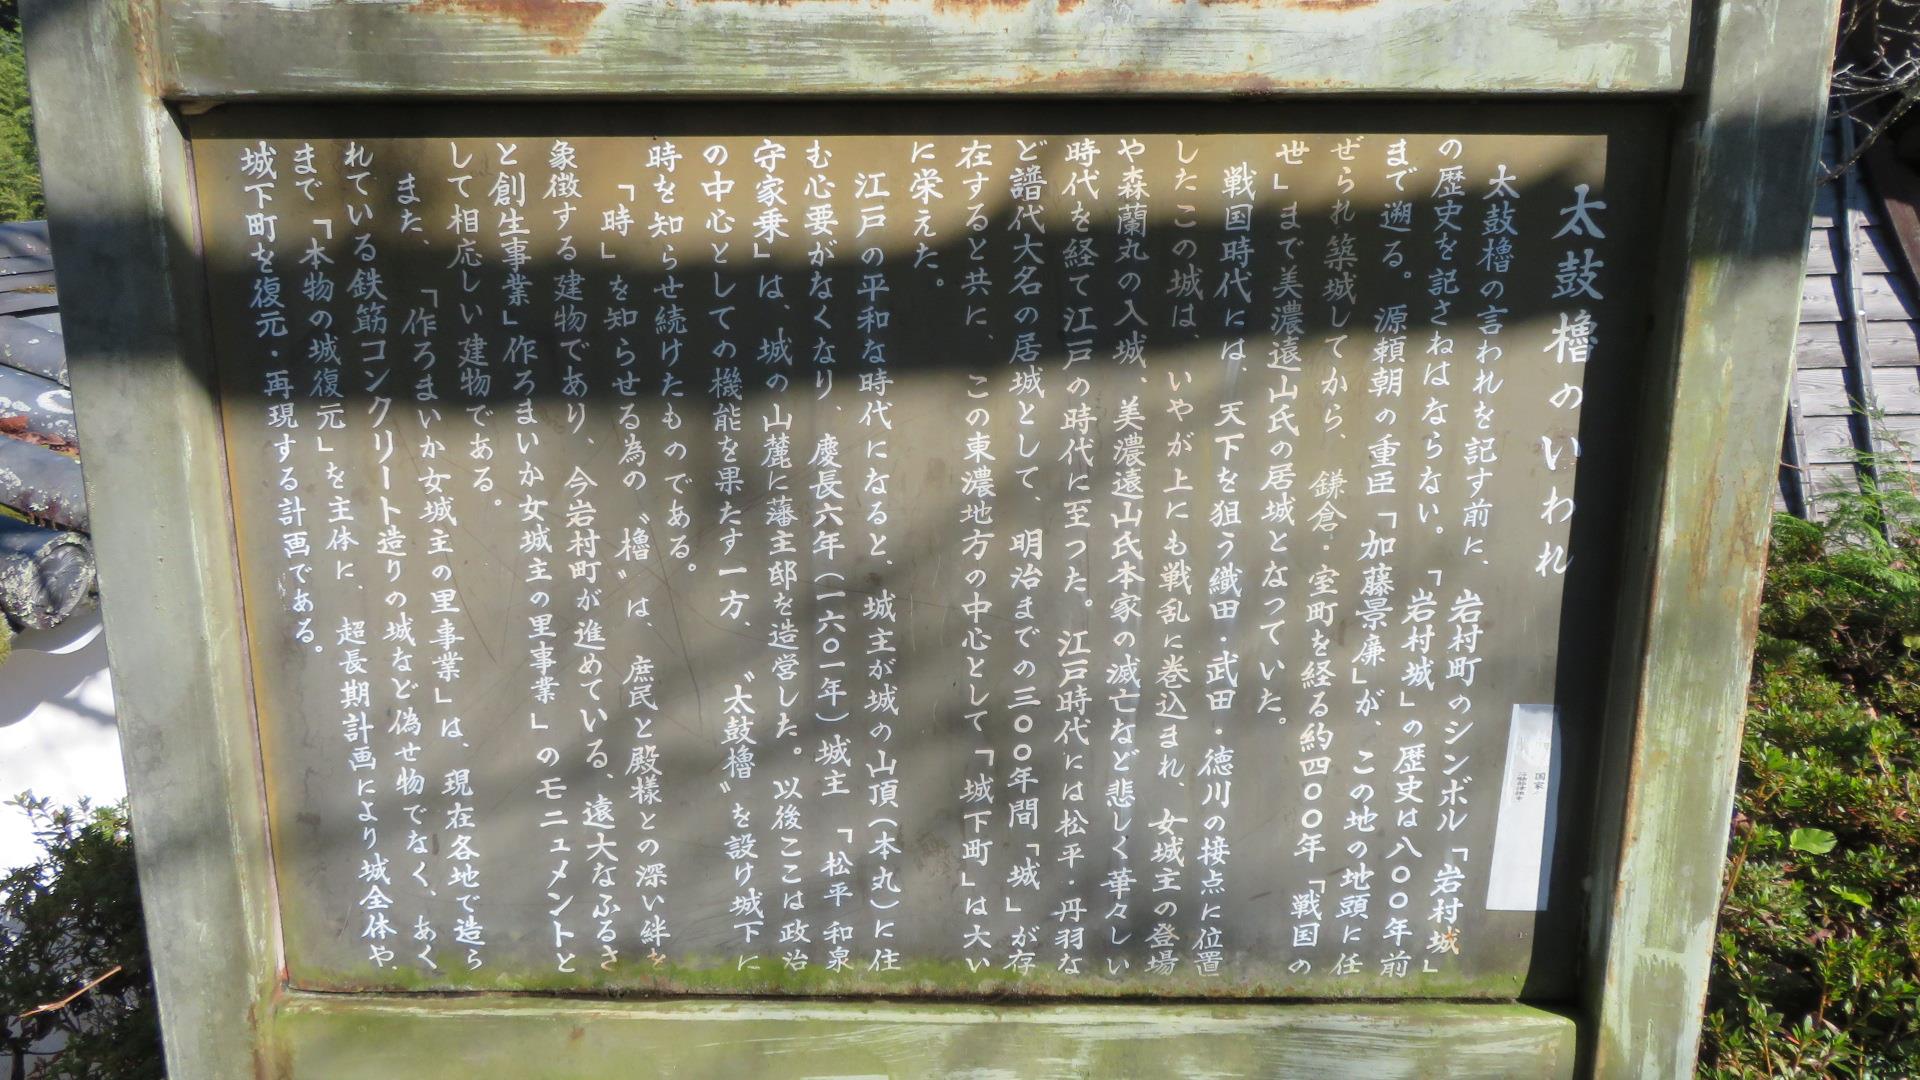 太鼓櫓のいわれ
太鼓櫓の言われを記す前に、岩村町のシンボル「岩村城」
の歴史を記さねばならない。「岩村城」の歴史は八〇〇年前
まで遡る。源頼朝の重臣「加藤景廉」が、この地の地頭に任
ぜられ築城してから、鎌倉・室町を経る約四〇〇年「戦国の
世」まで美濃遠山氏の居城となっていた。
戦国時代には、天下を狙う織田・武田・徳川の接点に位置
したこの城は、いやが上にも戦乱に巻込まれ、女城主の登場
や森蘭丸の入城、美濃遠山氏本家の滅亡など悲しく華々しい
時代を経て江戸の時代に至った。江戸時代には松平・丹羽な
ど譜代大名の居城として、明治までの三〇〇年間「城」が存
在すると共に、この東濃地方の中心として「城下町」は大い
に栄えた。
江戸の平和な時代になると、城主が城の山頂(本丸)に住
む心要がなくなり、慶長六年(一六〇一年)城主 「松平 和泉
守家乗」は、城の山麓に藩主邸を造営した。以後ここは政治
の中心としての機能を果たす一方、〝太鼓櫓〟を設け城下に
時を知らせ続けたものである。
「時」を知らせる為の〝櫓〟は、庶民と殿様との深い絆を
象徴する建物であり、今岩村町が進めている、遠大なふるさ
と創生事業」作ろまいか女城主の里事業」のモニュメントと
して相応しい建物である。
また、「作ろまいか女城主の里事業」は、現在各地で造ら
れている鉄筋コンクリート造りの城など偽せ物でなく、あく
まで「本物の城復元」を主体に、超長期計画により城全体や、
城下町を復元・再現する計画である。
国家